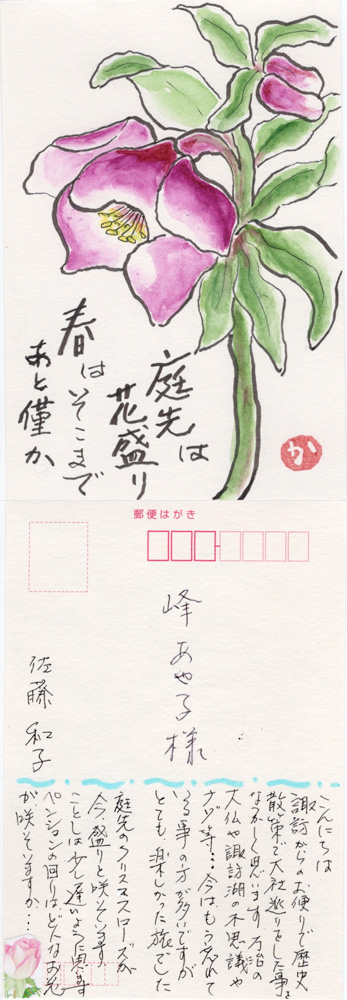 庭先は
花盛り
春はそこまで
あと僅か
か
郵便はがき
峰あや子様
佐藤和子
こんにちは
諏訪からのお便りで歴史
散策で大社巡りをした事を
なつかしく思います 万治の
大仏や諏訪湖の不思議や
ナゾ等…今はもう忘れて
いる事の方が多いですが
とても楽しかった旅でした
庭先のクリスマスローズが
今、盛りと咲いています
ことしは少し遅いように思います
ペンションの回りはどんなお花
が咲いていますか…